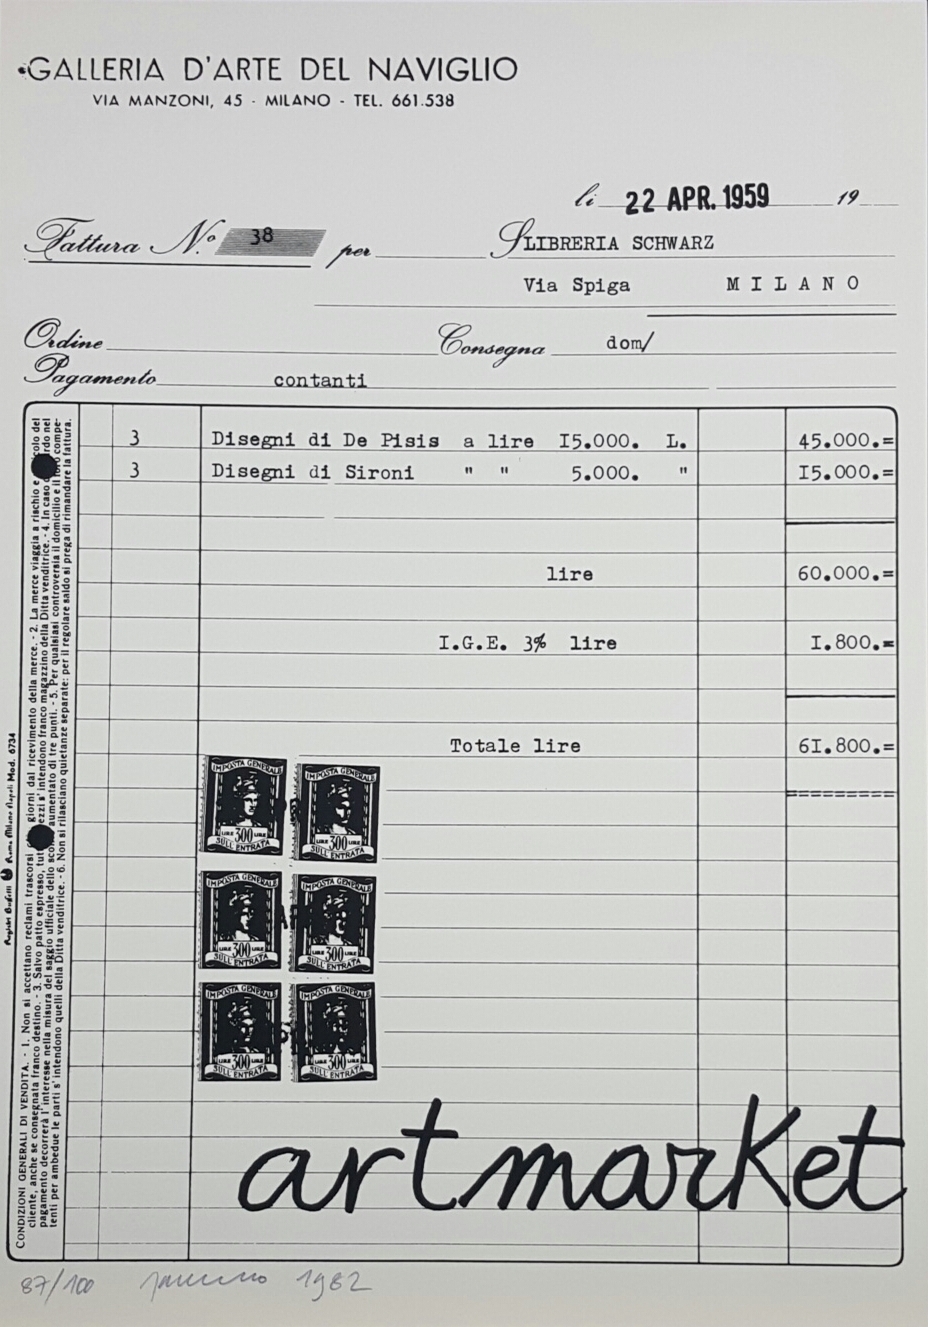 GALLERIA D'ARTE DEL NAVIGLIO
VIA MANZONI, 45 - MILANO - TEL. 661.538
li 22 APR. 1959 19
Fattura N.º 38 per S LIBRERIA SCHWARZ
Via Spiga MILANO
Ordine Consegna dom/
Pagamento contanti
3 Disegni di De Pisis a lire I5.000. L. 45.000.=
3 Disegni di Sironi " " 5.000. " I5.000.=
lire 60.000.=
I.G.E. 3% lire I.800.=
Totale lire 6I.800.=
IMPOSTA GENERALE
LIRE 300 LIRE
SULL'ENTRATA
IMPOSTA GENERALE
LIRE 300 LIRE
SULL'ENTRATA
IMPOSTA GENERALE
LIRE 300 LIRE
SULL'ENTRATA
IMPOSTA GENERALE
LIRE 300 LIRE
SULL'ENTRATA
IMPOSTA GENERALE
LIRE 300 LIRE
SULL'ENTRATA
IMPOSTA GENERALE
LIRE 300 LIRE
SULL'ENTRATA
artmarket
CONDIZIONI GENERALI DI VENDITA. - 1. Non si accettano reclami trascorsi giorni dal ricevimento della merce. - 2. La merce viaggia a rischio e colo del
cliente, anche se consegnata franco destino. - 3. Salvo patto espresso, tut ezzi s'intendono franco magazzino della Ditta venditrice. - 4. In caso rdo nel
pagamento decorrerà l'interesse nella misura del saggio ufficiale dello sco aumentato di tre punti. - 5. Per qualsiasi controversia il domicilio e il foro compe-
tenti per ambedue le parti s'intendono quelli della Ditta venditrice. - 6. Non si rilasciano quietanze separate: per il regolare saldo si prega di rimandare la fattura.
Buffetti Roma Milano Napoli Mod. 6734
87/100 1982